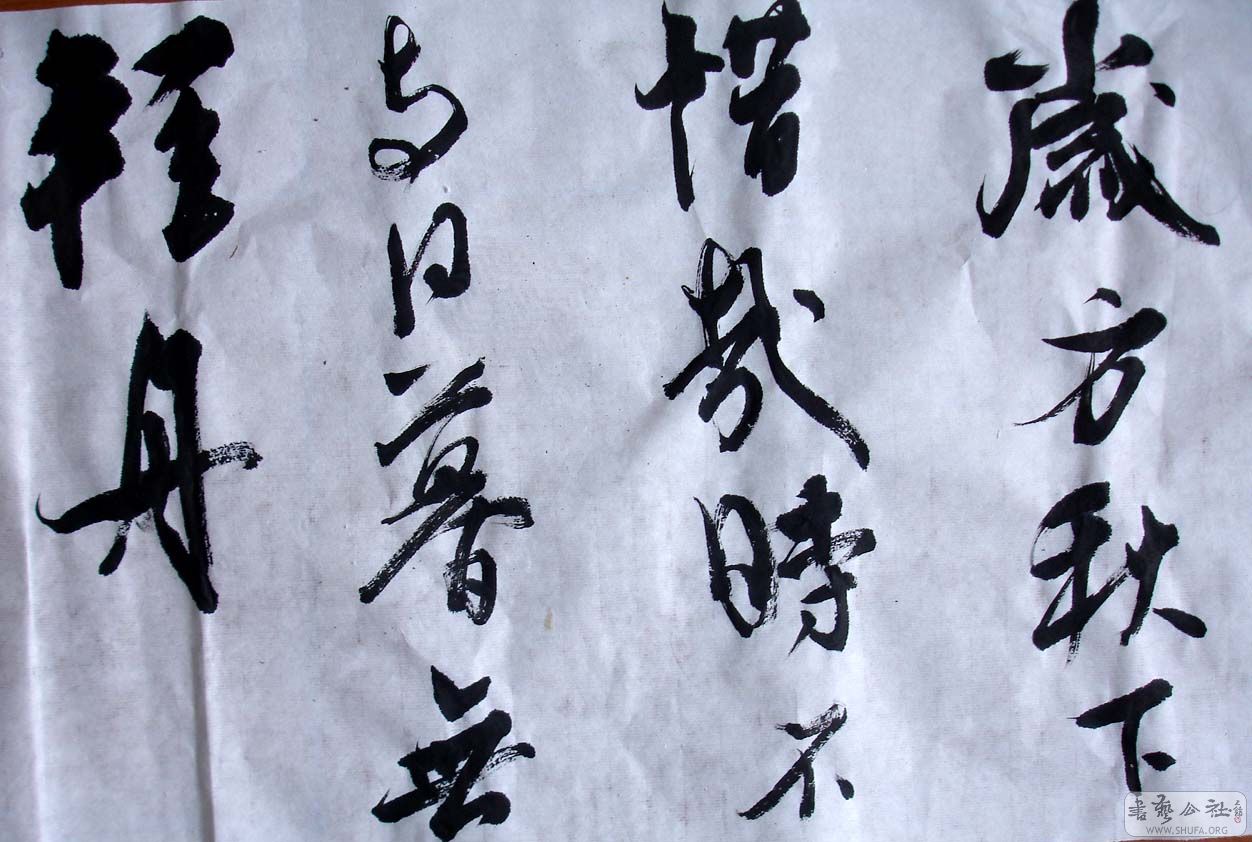 歲方秋下
惜哉時不
与日暮無
輕舟
書藝公社
WWW.SHUFA.ORG